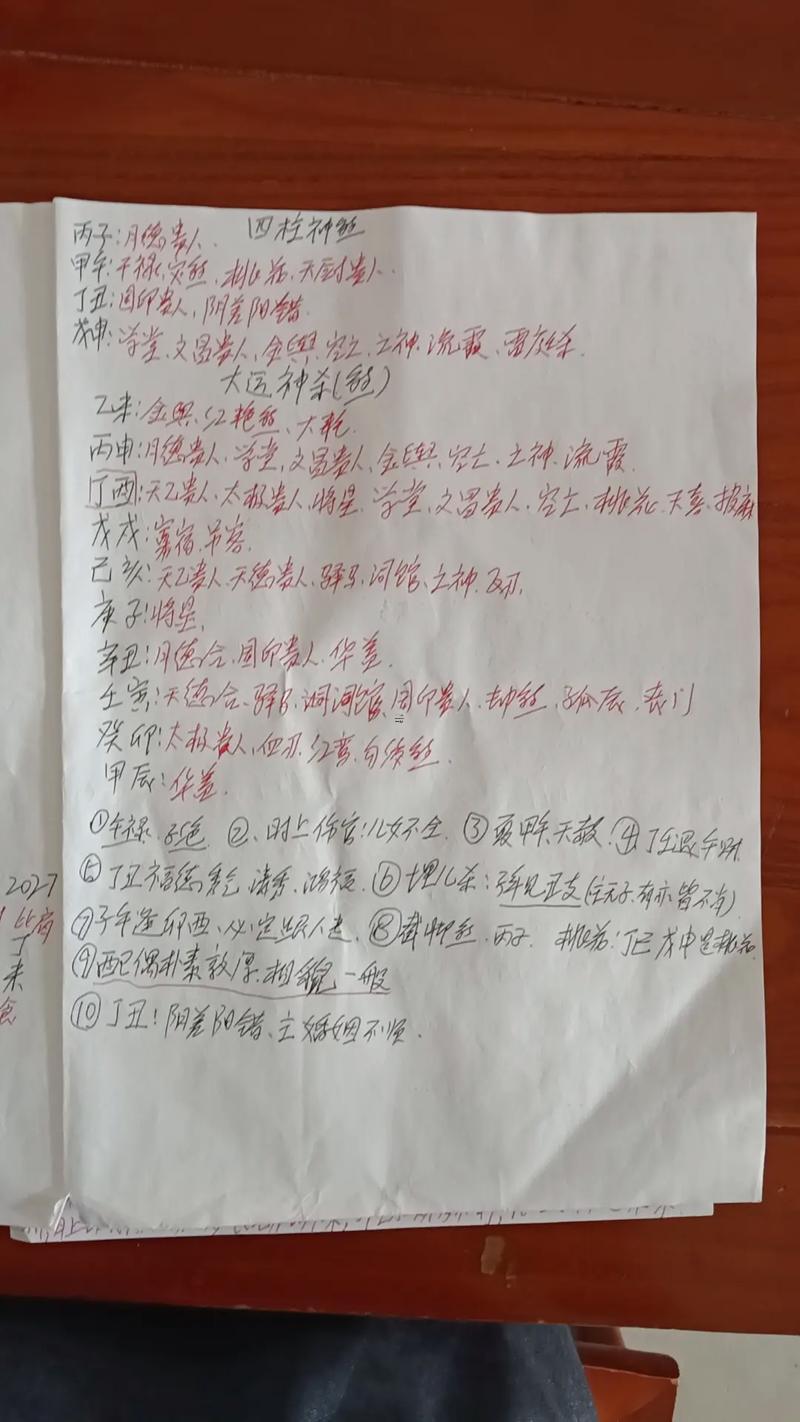 四柱神煞
丙子:月德贵人.
甲午:干禄,灾煞,桃花,天厨贵人.
丁丑:国印贵人,阴差阳错.
戊申:学堂、文昌贵人,金舆、空亡、亡神、流霞、雷霆杀.
大运神杀(煞)
乙未:金舆、红艳煞、大耗.
丙申:月德贵人、学堂,文昌贵人,金舆、空亡、亡神、流霞.
丁酉:天乙贵人,太极贵人,将星、学堂,文昌贵人,空亡、桃花、天喜、披麻
戊戌:寡宿、吊客.
己亥:天乙贵人、天德贵人、驿马、词馆、亡神、
庚子:将星,
辛丑:月德合、国印贵人、华盖.
壬寅:天德合、驿马、词馆、国印贵人、劫煞、孤辰、丧门
癸卯:太极贵人,血刃、红鸾,勾绞煞.
甲辰:华盖.
② 时上伤官:儿女不全. ③夏甲午天赦. ④
⑤丁丑福德秀气, 清秀、鸿福. ⑥埋儿杀: (柱无子、有亦皆不肖)
⑦子午逢卯酉、必定 人走. ⑧截脚煞、丙子. 桃花:丁巳戊申是桃花
⑨配偶朴素敦厚.相貌一般
⑩丁丑:阴差阳错、主婚姻不顺.
2027
丁
未
食